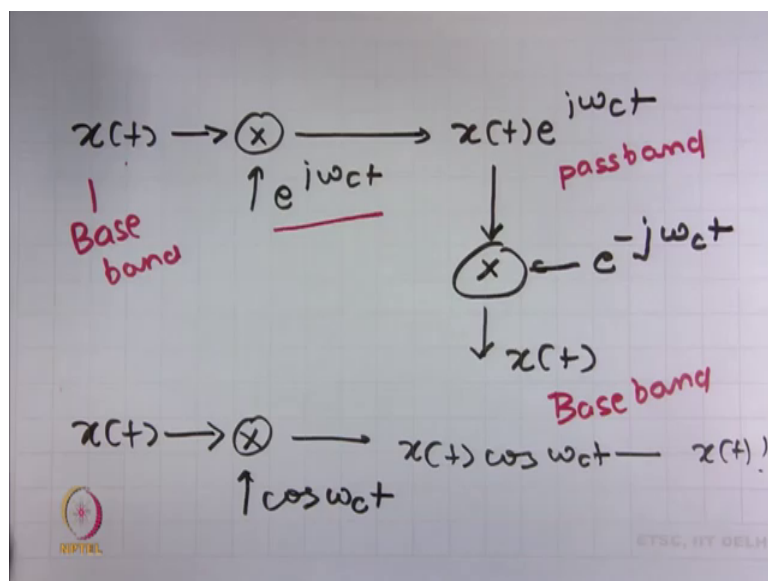 x(t) → ⊗ → x(t)e^{jω_c t}
↑ e^{jω_c t}
passband
Base
band
⊗ ← e^{-jω_c t}
↓ x(t)
Base band
x(t) → ⊗ — x(t) cos ω_c t — x(t)?
↑ cos ω_c t
NPTEL
ETSC, IIT DELH